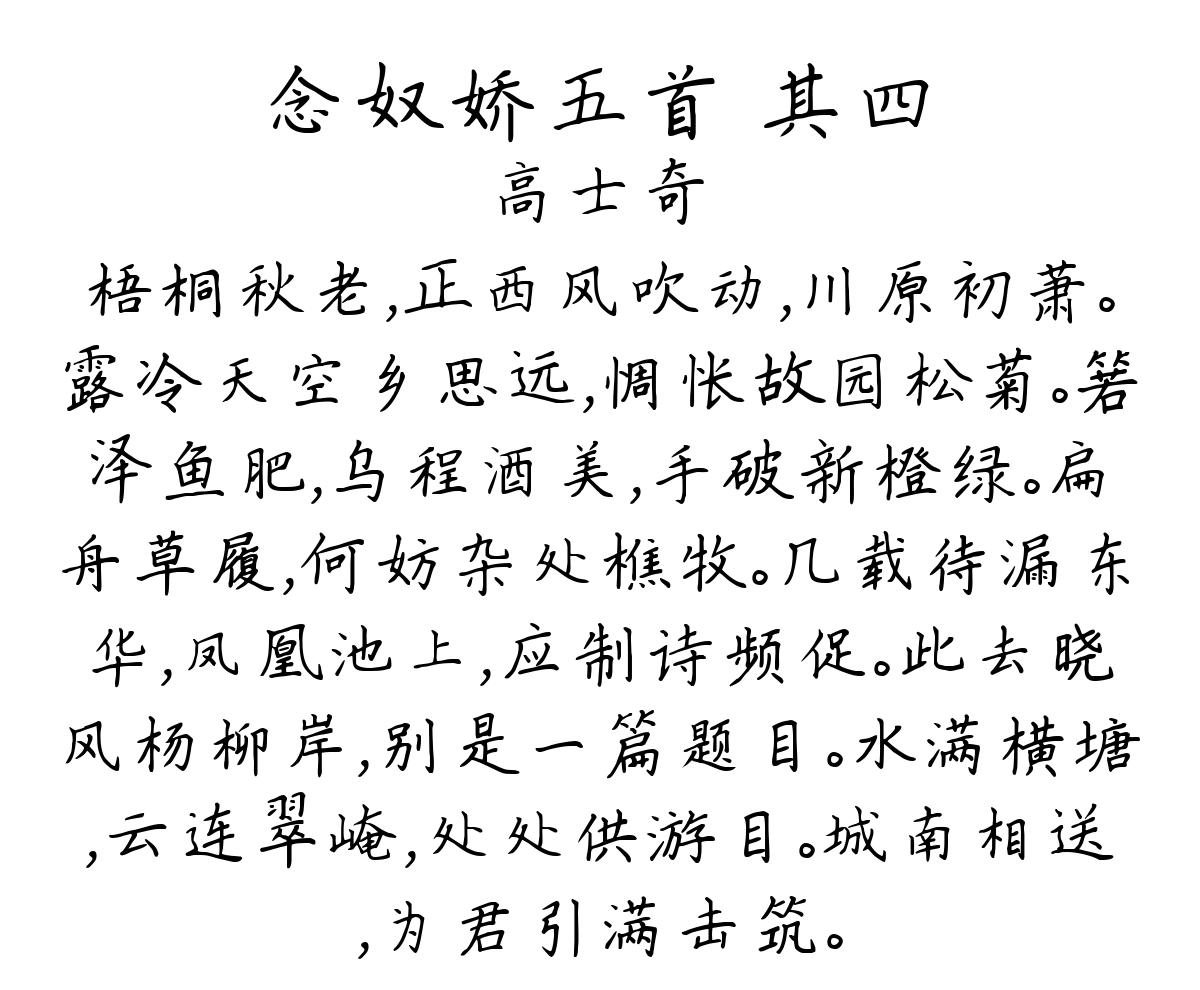 念奴娇五首 其四
高士奇
梧桐秋老,正西风吹动,川原初萧。
露冷天空乡思远,惆怅故园松菊。箬
泽鱼肥,乌程酒美,手破新橙绿。扁
舟草履,何妨杂处樵牧。几载待漏东
华,凤凰池上,应制诗频促。此去晓
风杨柳岸,别是一篇题目。水满横塘
,云连翠崦,处处供游目。城南相送
,为君引满击筑。